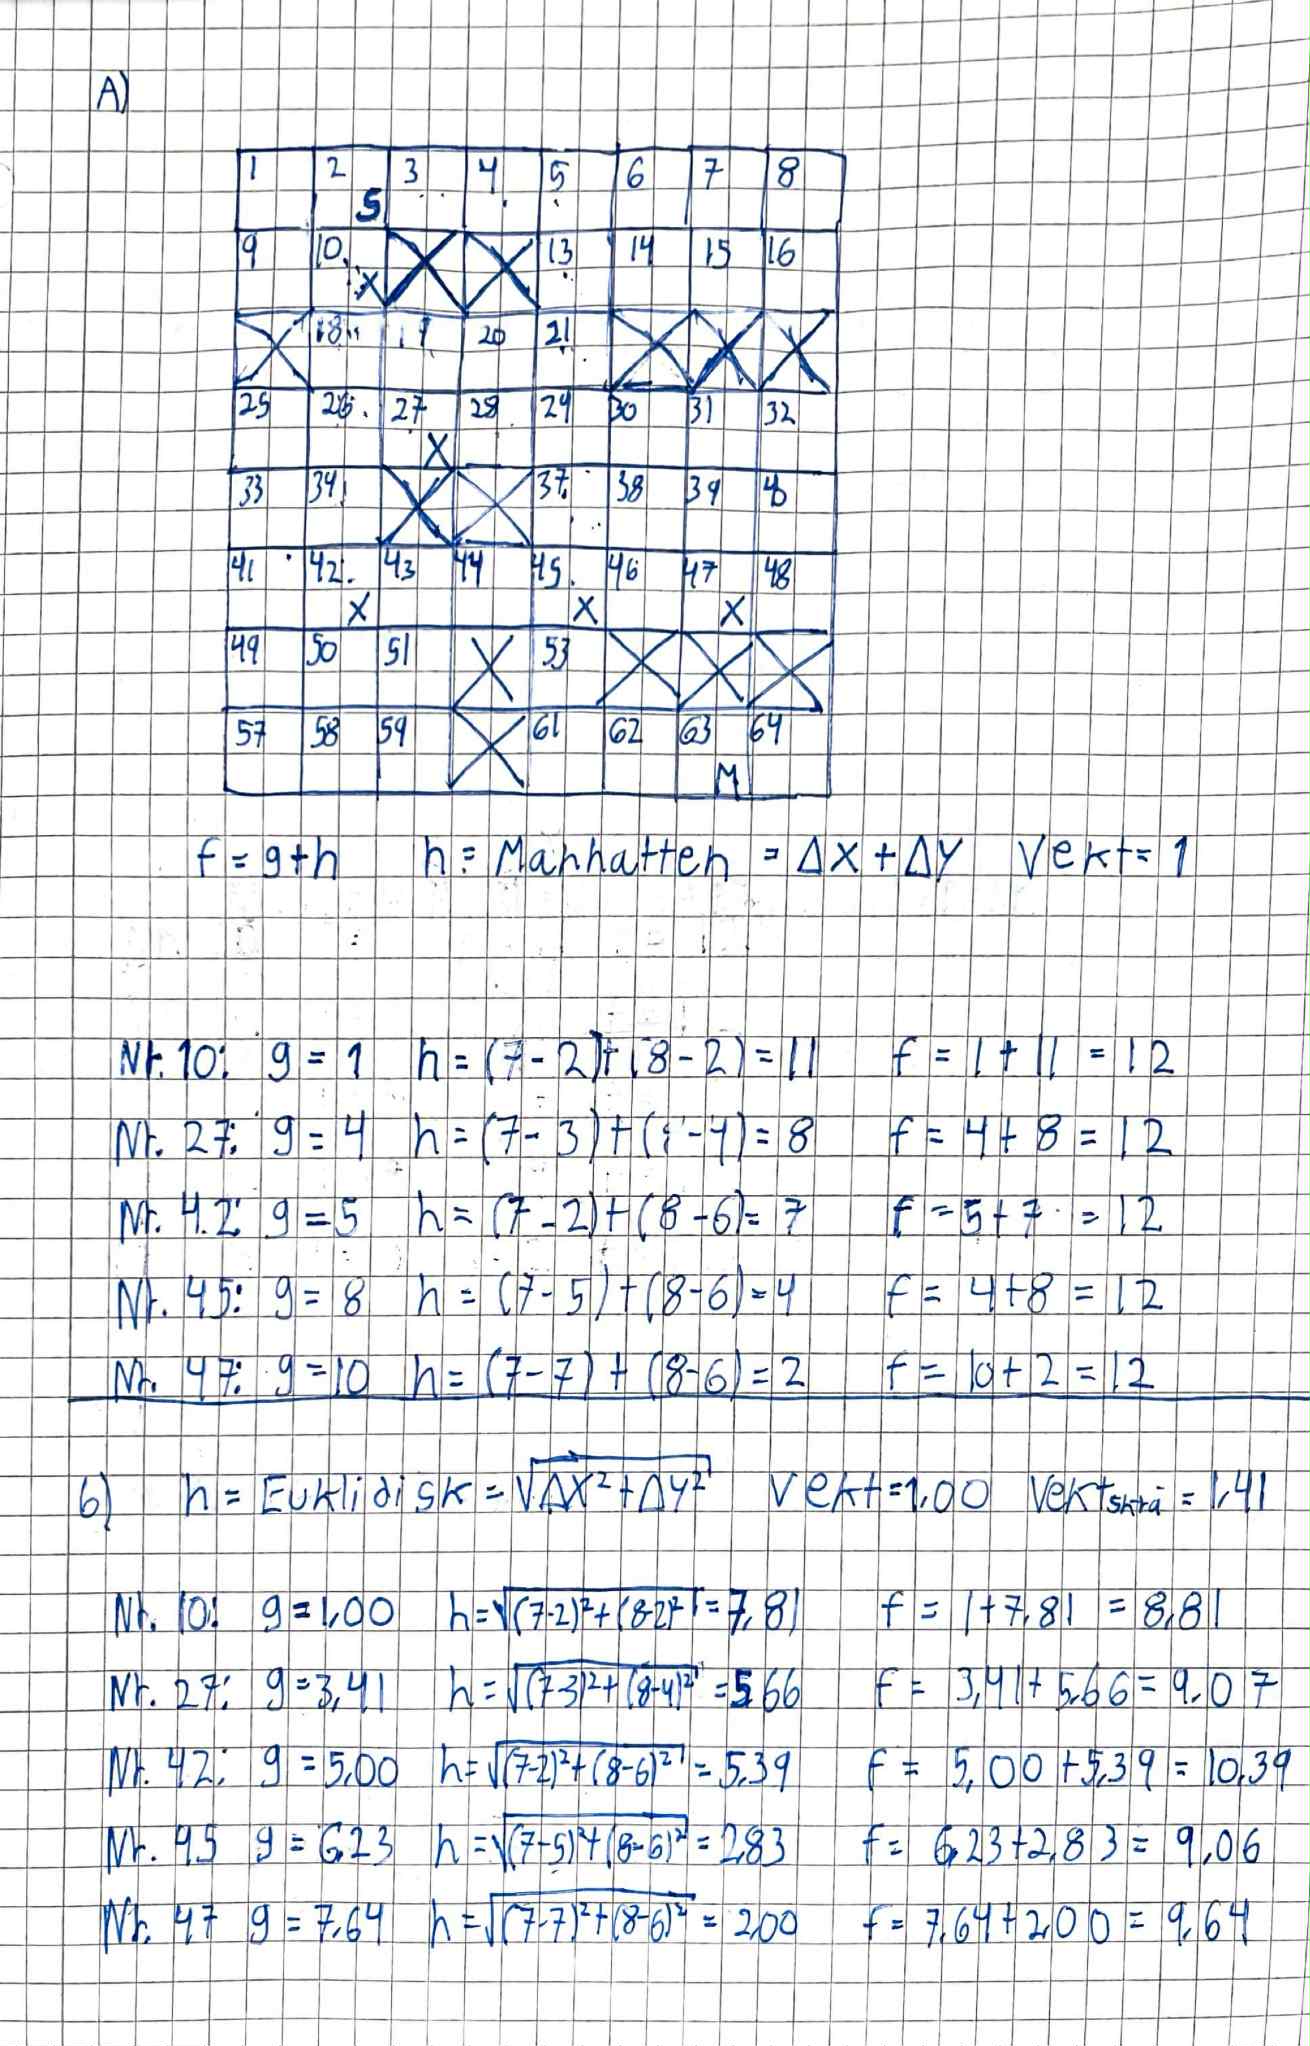 A)
1 2 3 4 5 6 7 8
S
9 10 13 14 15 16
X
18 19 20 21
25 26 27 28 29 30 31 32
X
33 34 37 38 39 40
41 42 43 44 45 46 47 48
X X X
49 50 51 53
57 58 59 61 62 63 64
M
f = g+h h = Manhatten = ΔX + ΔY Vekt= 1
Nr. 10: g = 1 h = (7-2)+(8-2) = 11 f = 1 + 11 = 12
Nr. 27: g = 4 h = (7-3)+( -4) = 8 f = 4+ 8 = 12
Nr. 42: g = 5 h = (7-2)+(8-6)= 7 f = 5+7 = 12
Nr. 45: g = 8 h = (7-5)+(8-6)=4 f = 4+8 = 12
Nr. 47: g = 10 h = (7-7) + (8-6) = 2 f = 10+2 = 12
b) h = Euklidisk = √ΔX²+ΔY² Vekt=1,00 Vektskrå = 1,41
Nr. 10: g = 1,00 h = √(7-2)²+(8-2)² = 7,81 f = 1+7,81 = 8,81
Nr. 27: g = 3,41 h = √(7-3)²+(8-4)² = 5,66 f = 3,41+5,66 = 9,07
Nr. 42: g = 5,00 h = √(7-2)²+(8-6)² = 5,39 f = 5,00+5,39 = 10,39
Nr. 45 g = 6,23 h = √(7-5)²+(8-6)² = 2,83 f = 6,23+2,83 = 9,06
Nr. 47 g = 7,64 h = √(7-7)²+(8-6)² = 2,00 f = 7,64+2,00 = 9,64